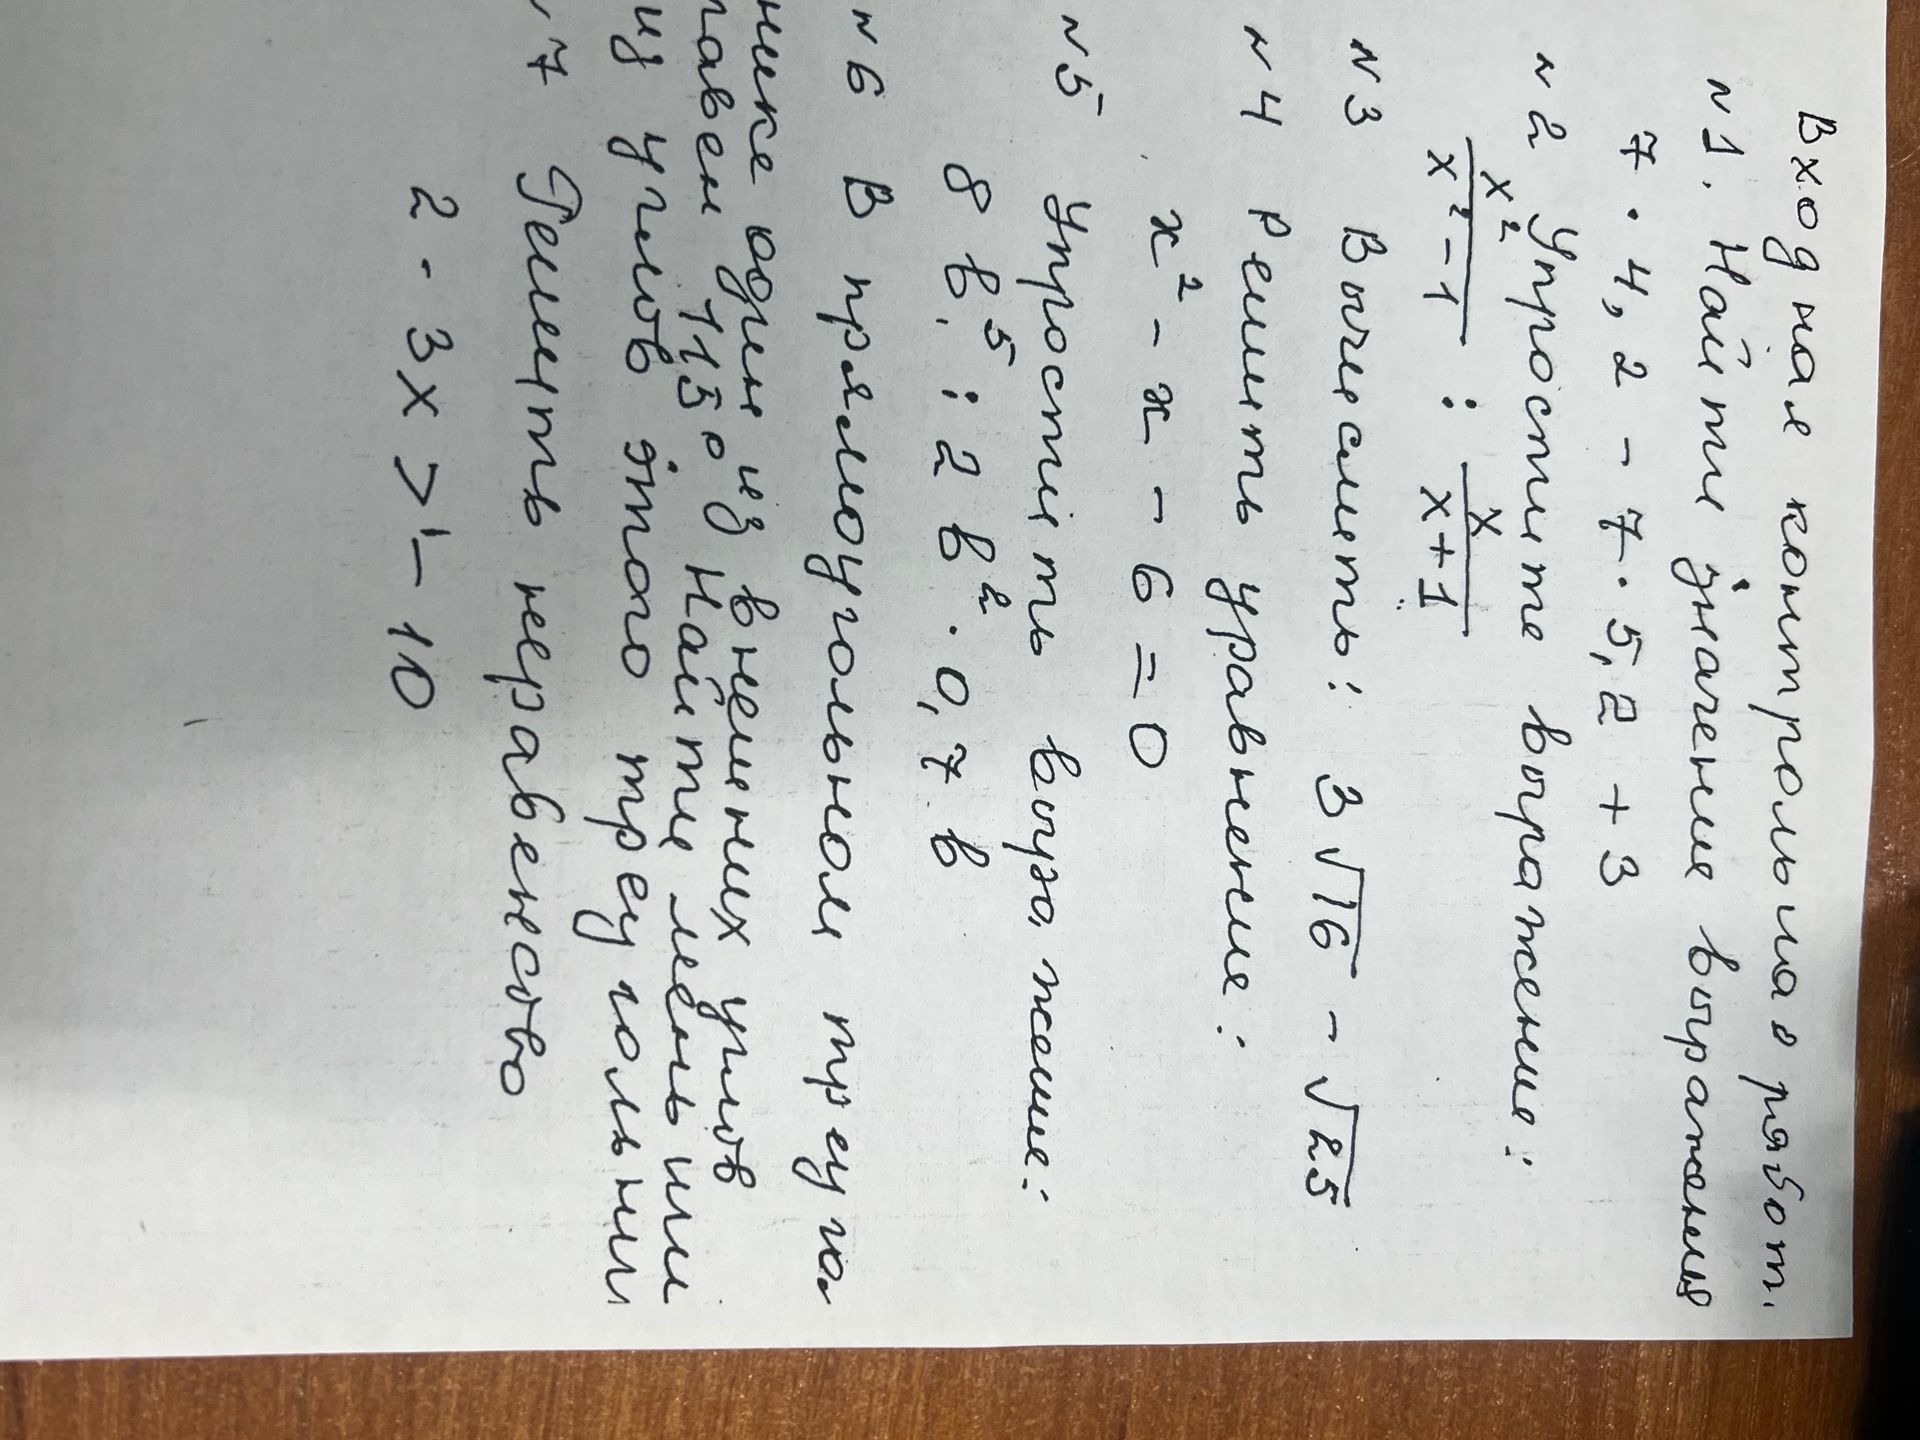 Входная контрольная работ.
N1. Найти значение выражения
7 · 4,2 - 7 · 5,2 + 3
N2 Упростите выражение:
x² / (x² - 1) : x / (x + 1)
N3 Вычислить: 3√16 - √25
N4 Решить уравнение:
x² - x - 6 = 0
N5 Упростить выражение:
8 в⁵ : 2 в² · 0,7 в
N6 В прямоугольном треуго
нике один из внешних углов
равен 115° Найти меньший
из углов этого треугольни
N7 Решить неравенство
2 - 3x > - 10